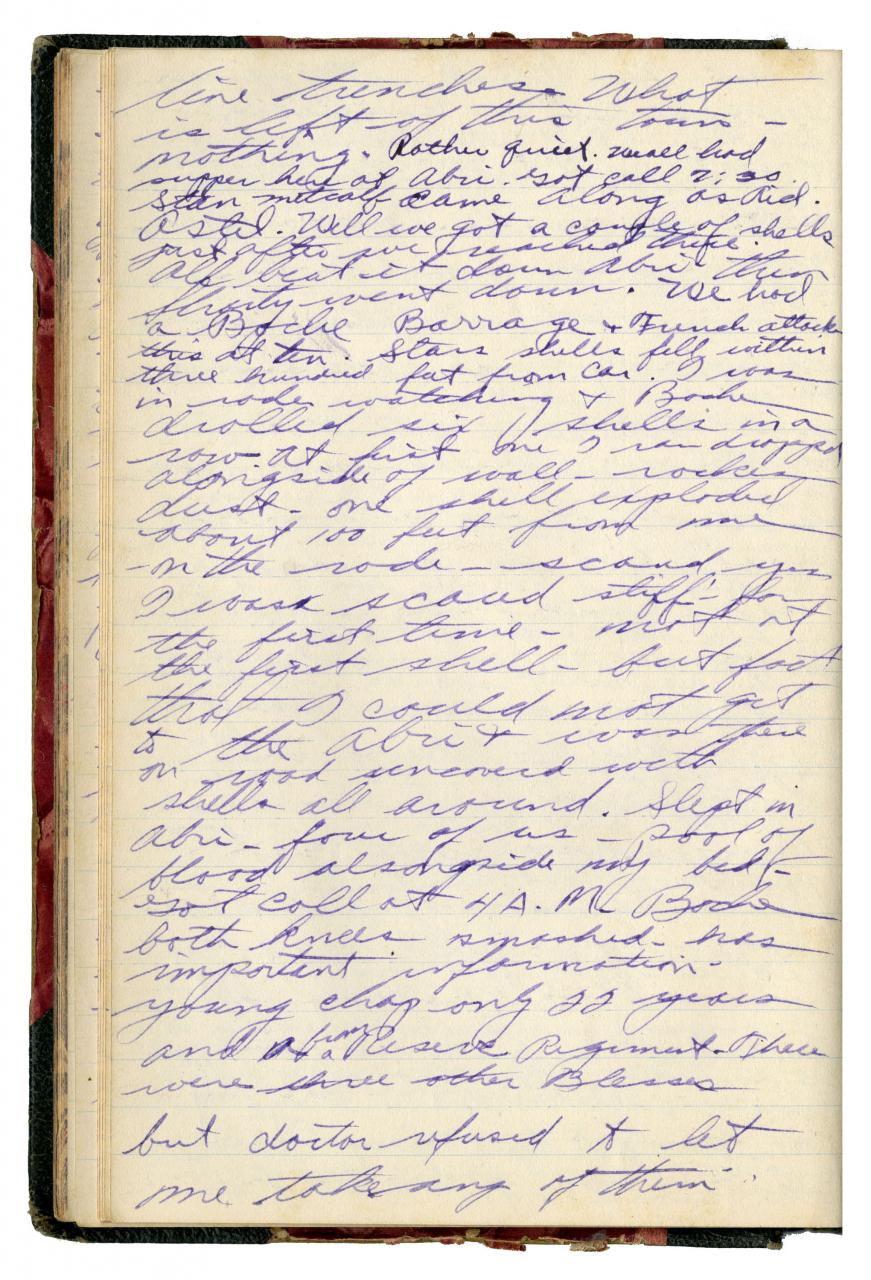 line trenches. What
is left of this town -
nothing. Rather quiet. We all had
supper here at Abri. Got call 7:30.
Stan Metcalf came along as Aid.
Well we got a couple of shells
just after we reached there.
All beat it down Abri then
went down. We had
a Boche Barrage & French attack
this at ten. Stars shells fell within
three hundred feet from car. I was
in rode watching & Boche
drolled six shells in a
row at first one I ran dropped
alongside of wall - rocks
dust - one shell exploded
about 100 feet from me
on the rode - scared yes
I was scared stiff - for
the first time - not at
the first shell - but fact
that I could not get
to the Abri & was there
on road uncoverd with
shells all around. Slept in
Abri - four of us - pool of
blood alsongside my bed -
Got call at 4 A.M. Boche
both knees smashed - has
important information -
young chap only 22 years
and from a Reserve Regiment. There
were three other Blesses
but doctor refused to let
me take any of them.